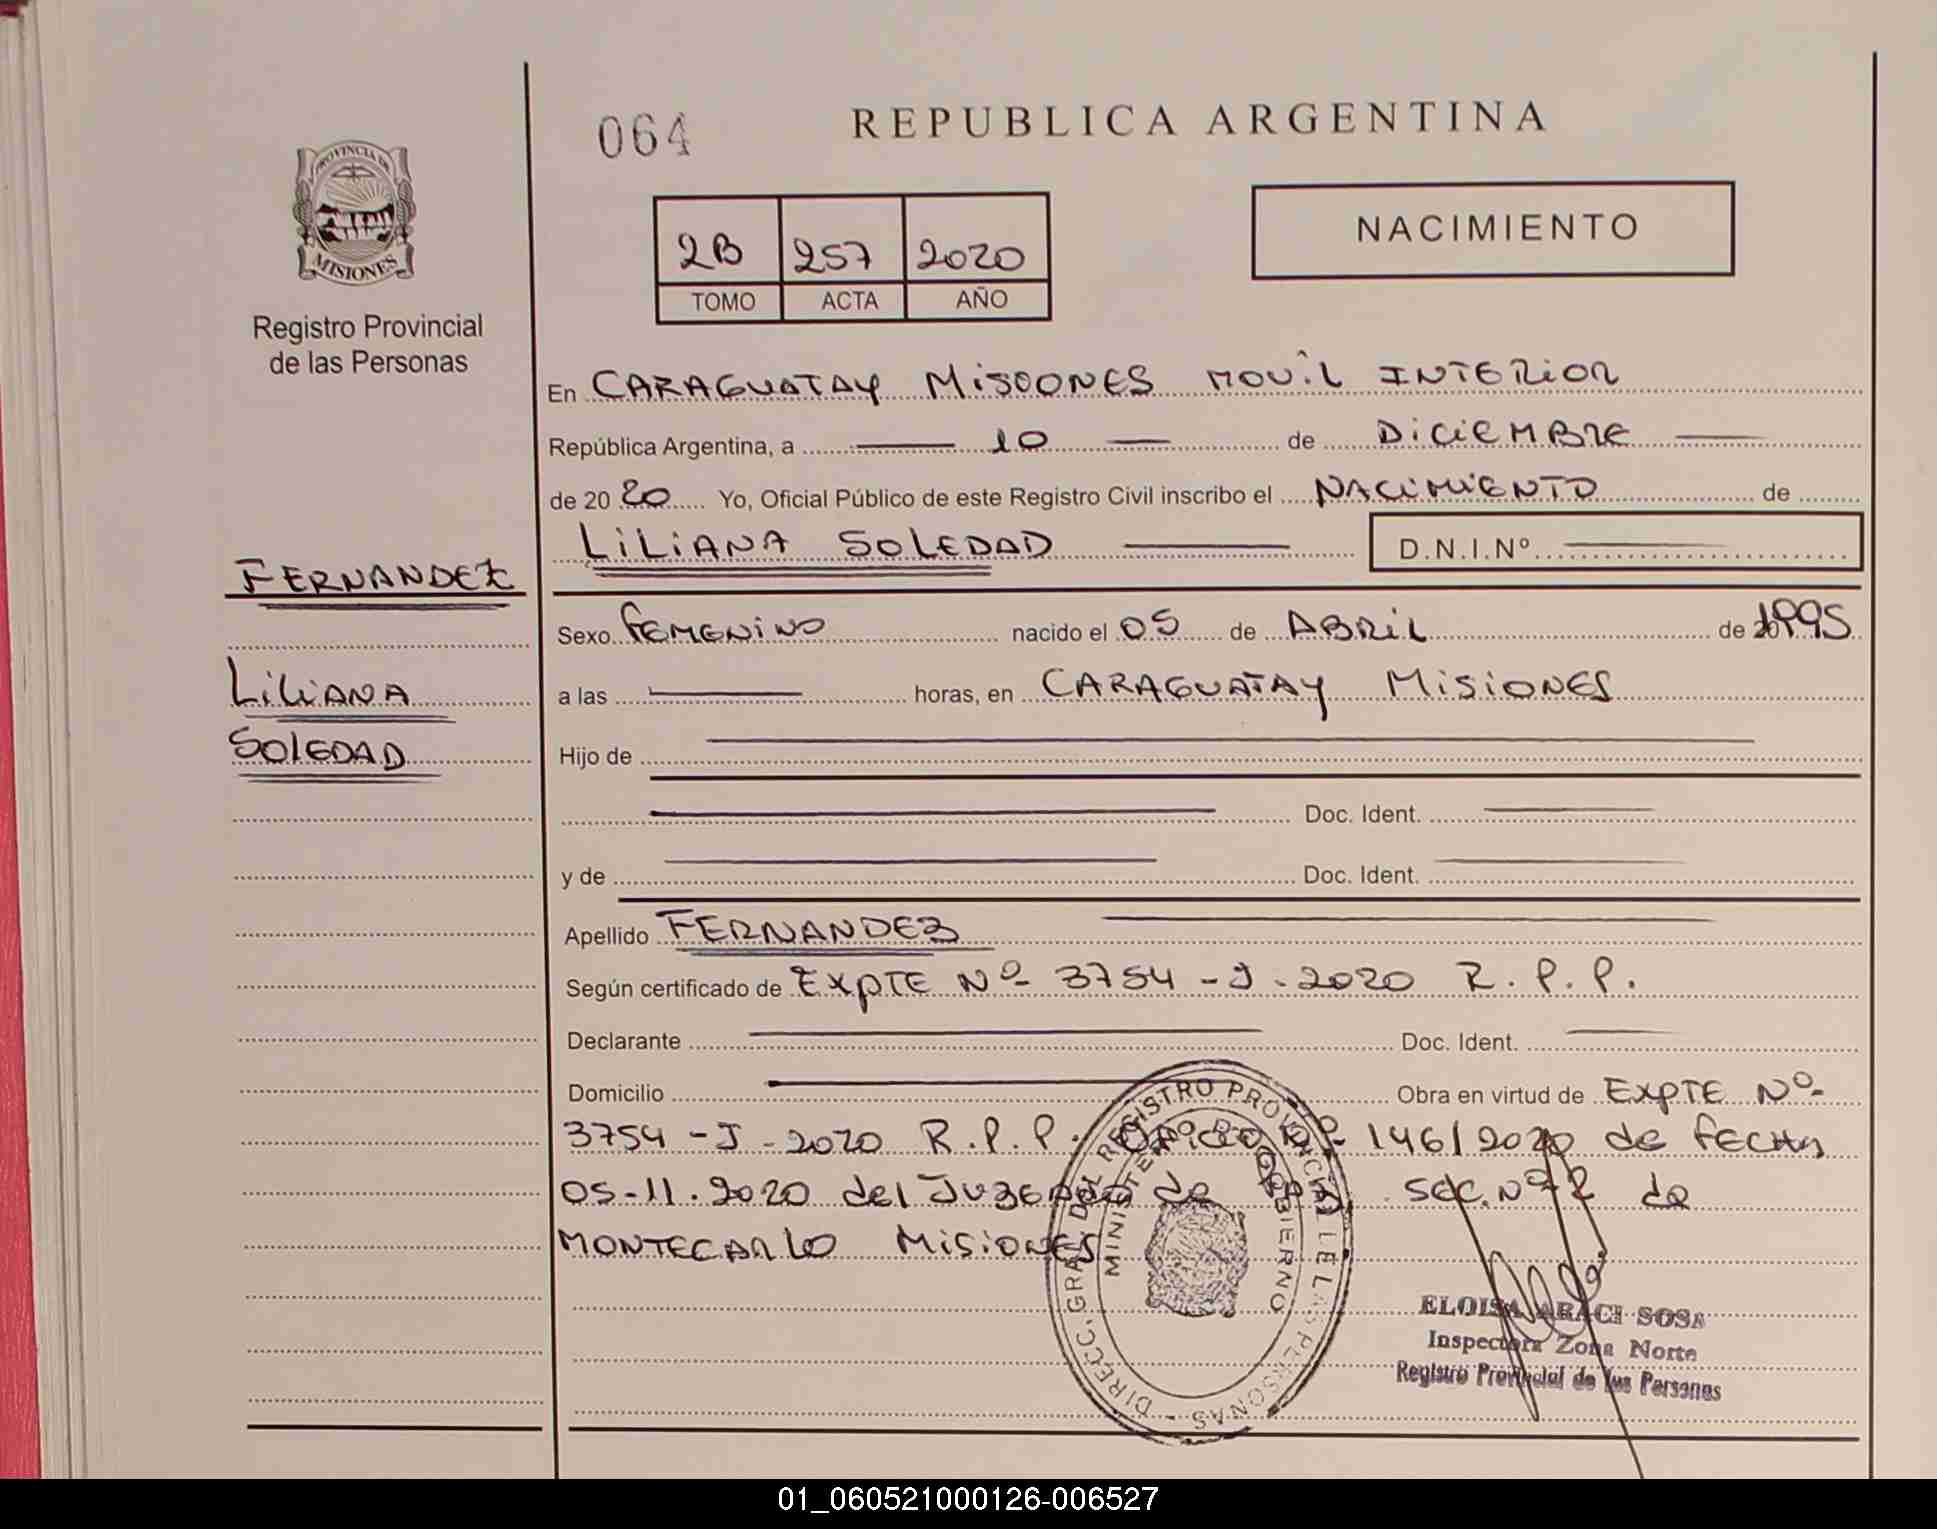 064
REPUBLICA ARGENTINA
PROVINCIA DE
MISIONES
Registro Provincial
de las Personas
2B 257 2020
TOMO ACTA AÑO
NACIMIENTO
En CARAGUATAY MISOONES MOVIL INTERIOR
República Argentina, a 10 de DICIEMBRE
de 20 20 Yo, Oficial Público de este Registro Civil inscribo el NACIMIENTO de
LILIANA SOLEDAD D.N.I.Nº
FERNANDEZ
Sexo FEMENINO nacido el 05 de ABRIL de 1995
LILIANA
a las horas, en CARAGUATAY MISIONES
SOLEDAD
Hijo de
Doc. Ident.
y de Doc. Ident.
Apellido FERNANDEZ
Según certificado de EXPTE Nº 3754 - J - 2020 R. P. P.
Declarante Doc. Ident.
Domicilio Obra en virtud de EXPTE Nº
3754 - J - 2020 R. P. P. OFICIO Nº 146/2020 de FECHA
05-11.2020 del JUZGADO de Paz SEC. Nº 2 de
MONTECARLO MISIONES
DIRECC. GRAL DEL REGISTRO PROVINCIAL DE LAS PERSONAS
MINISTERIO DE GOBIERNO
ELOISA ARACI SOSA
Inspectora Zona Norte
Registro Provincial de las Personas
01_060521000126-006527